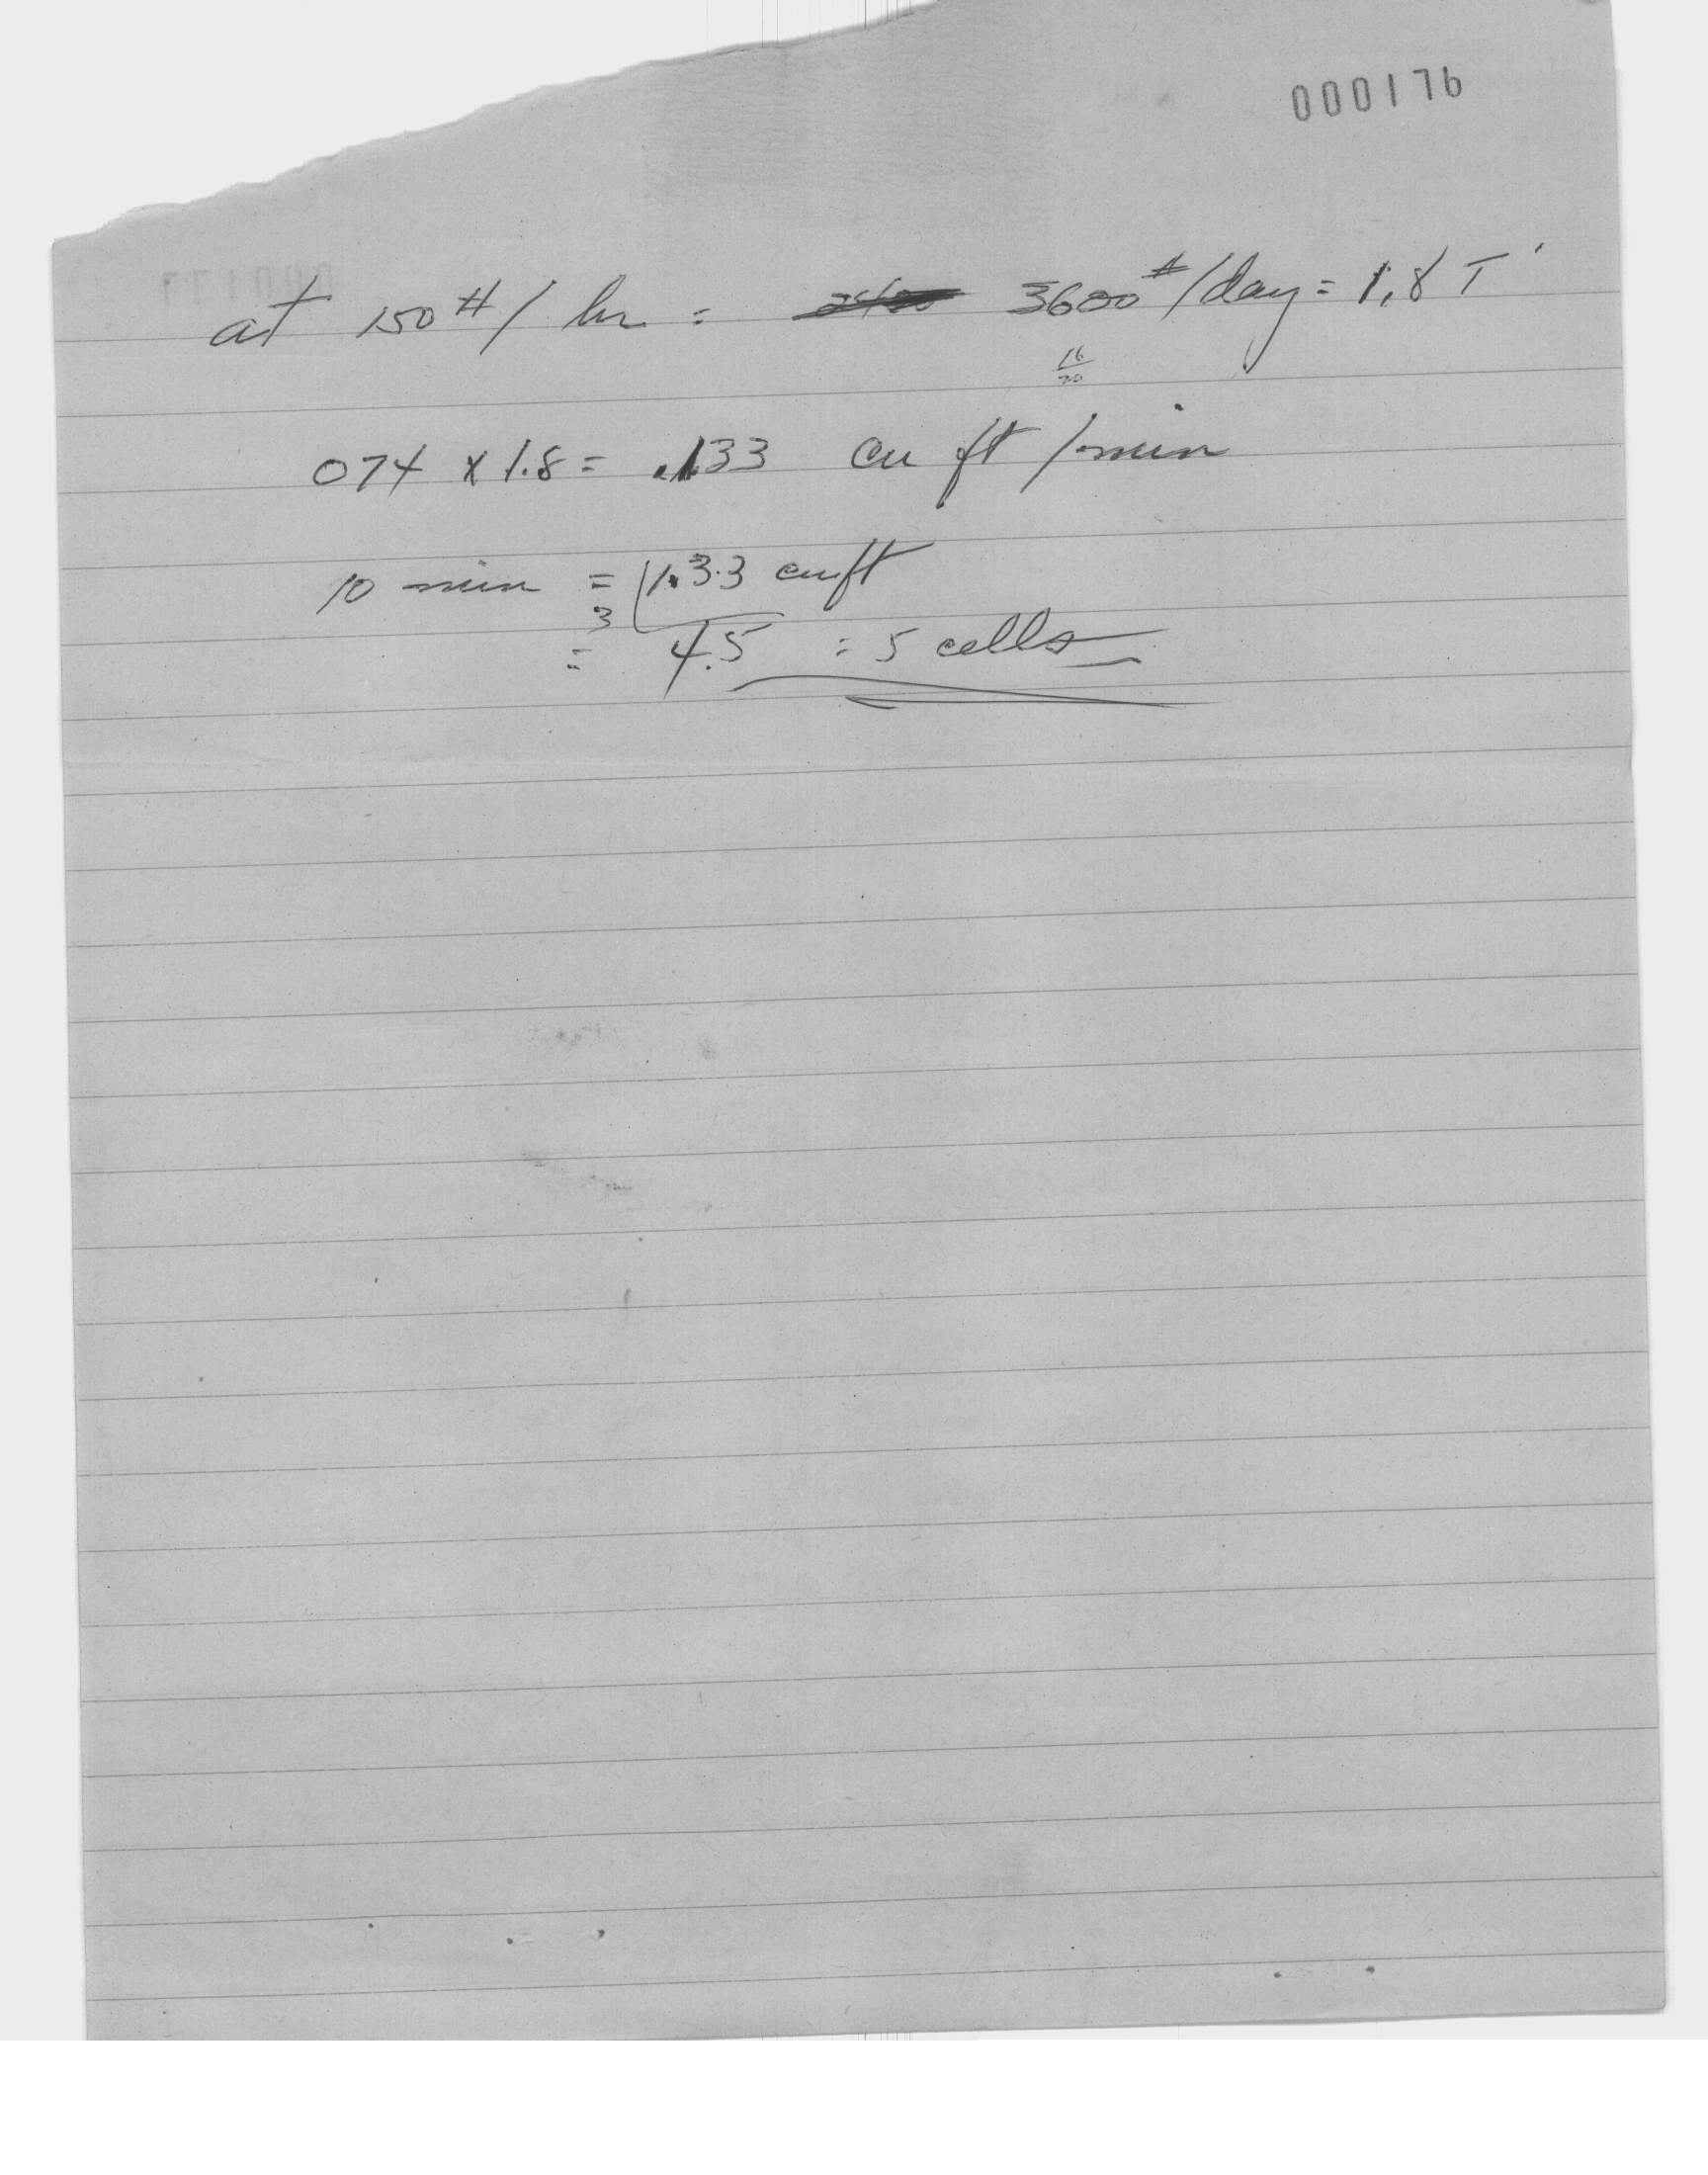 000176
at 150 #/ hr = 3600 #/day = 1.8 T
16
20
074 x 1.8 = .133 cu ft /min
10 min = 1.33 cu ft
3
= 4.5 = 5 cells